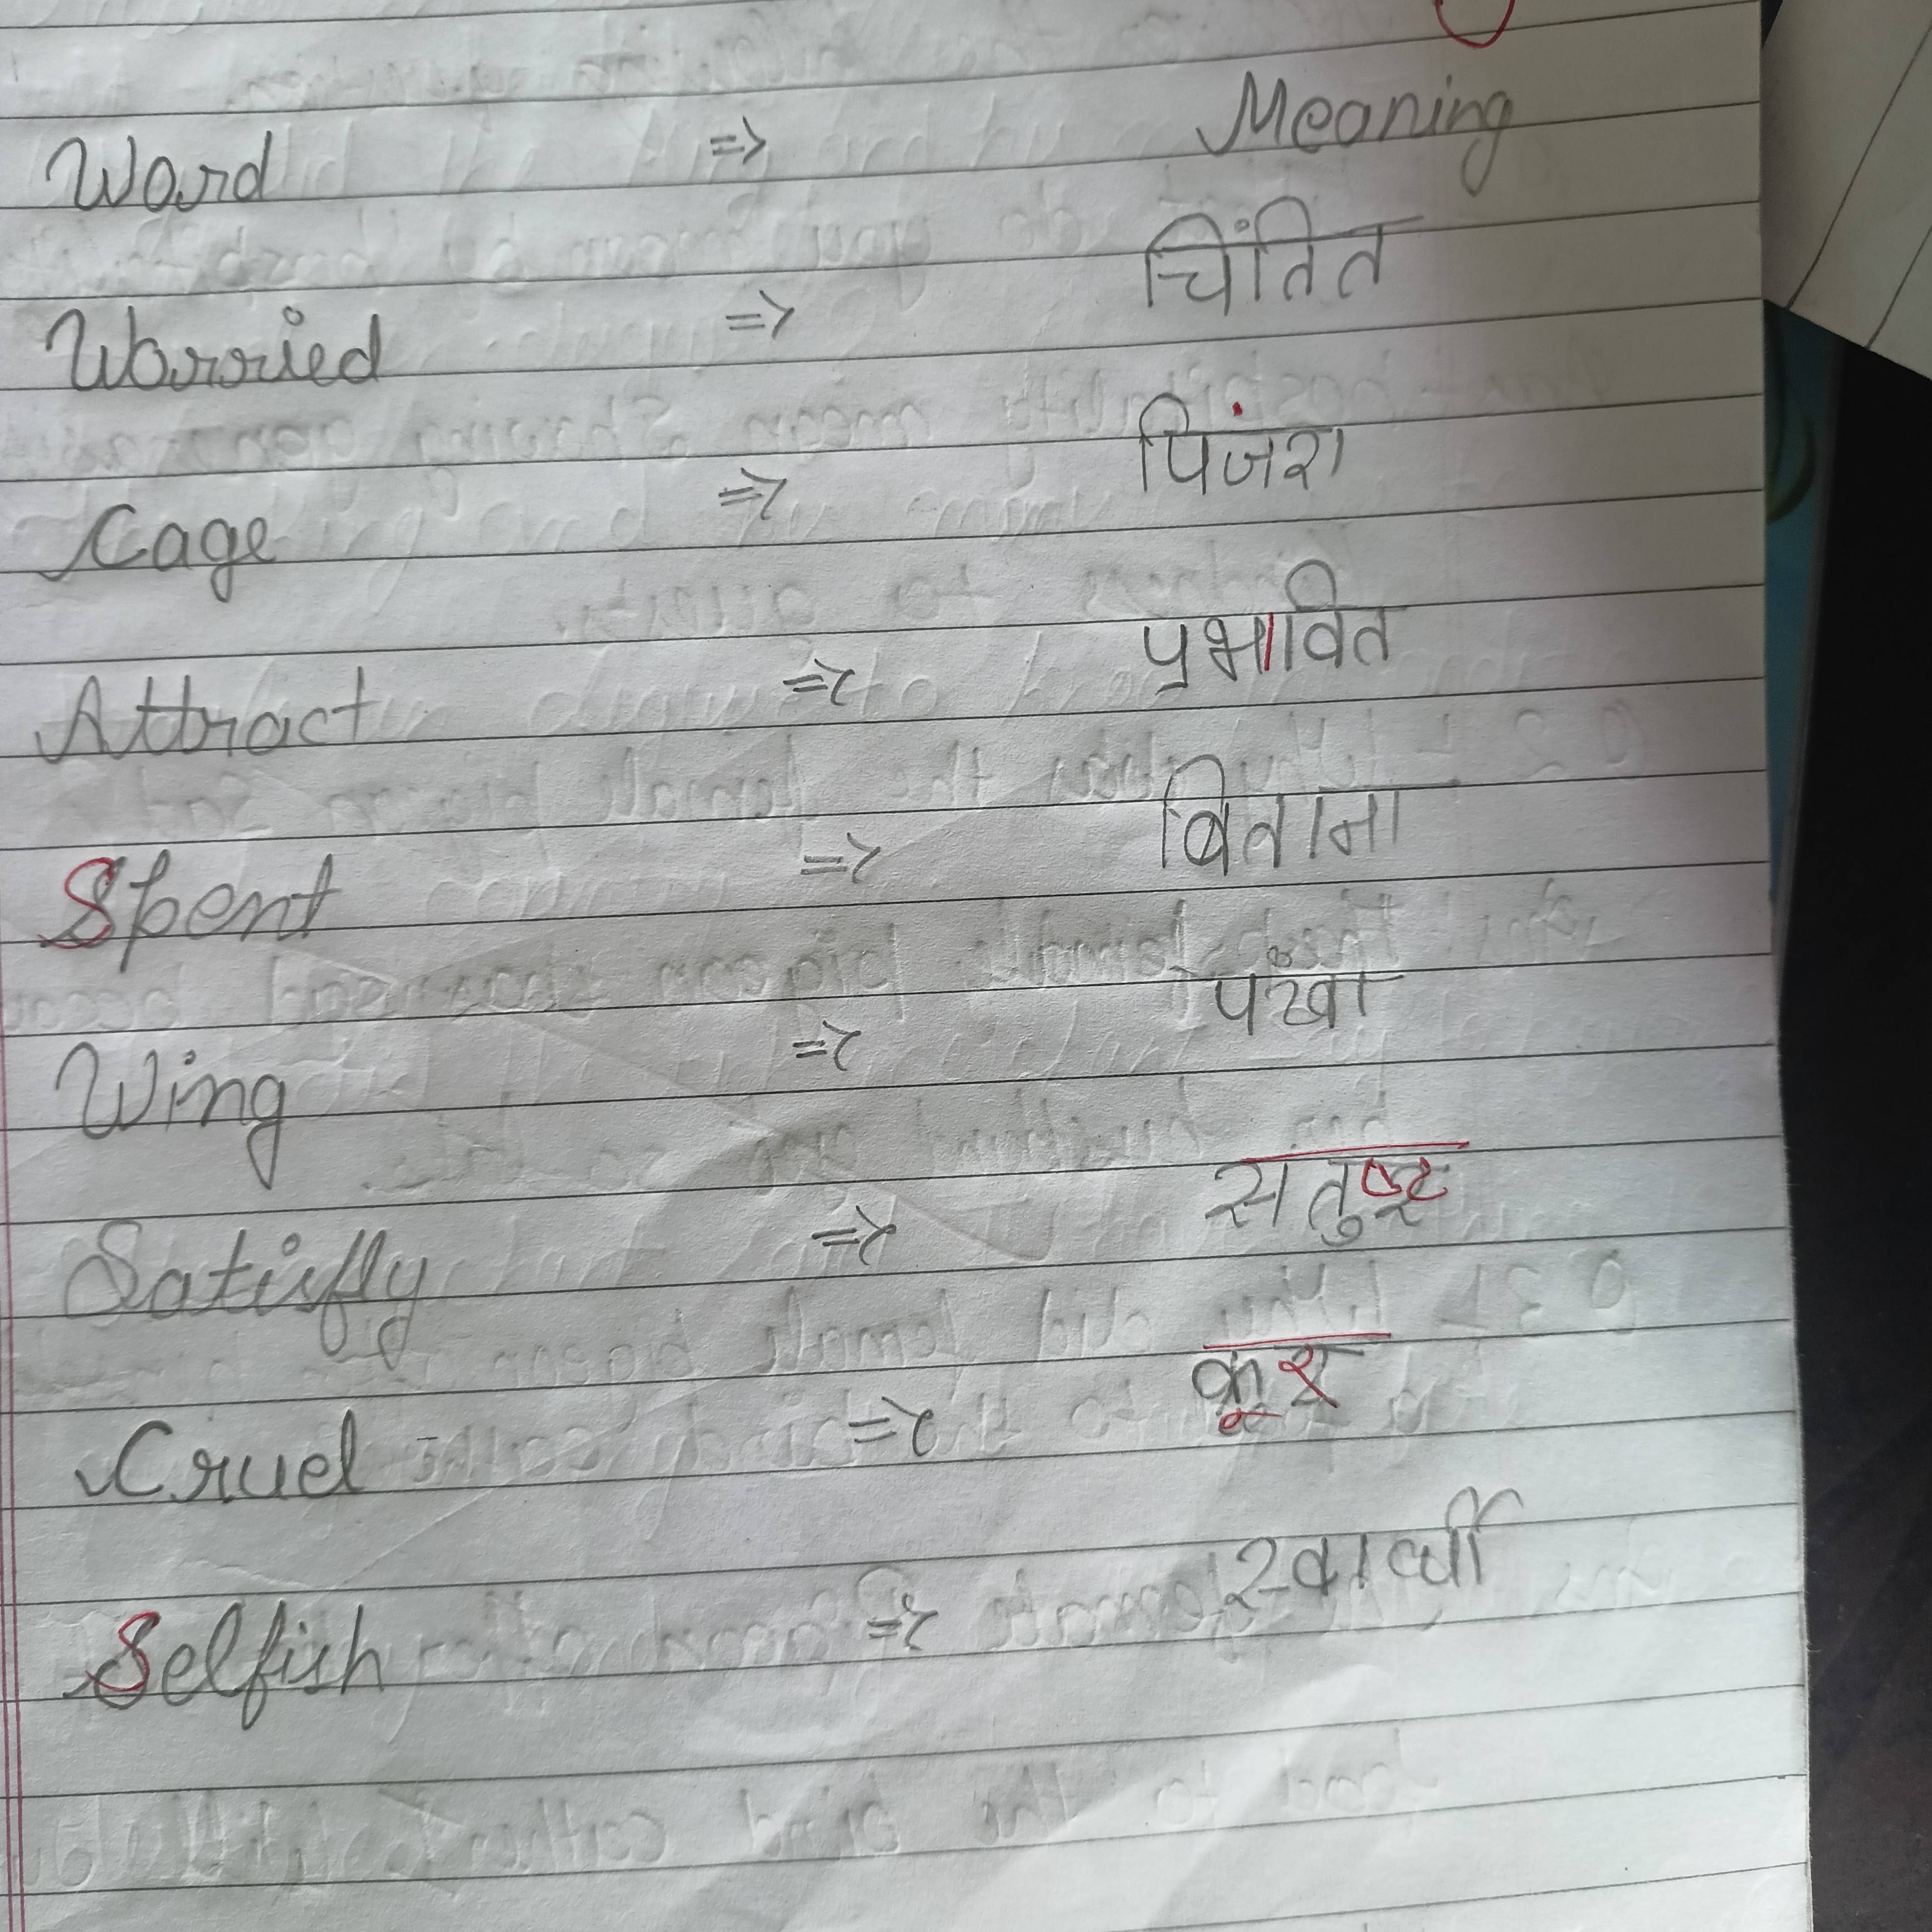 Word => Meaning
Worried => चिंतित
Cage => पिजंरा
Attract => प्रभावित
Spent => बिताना
Wing => पंखा
Satisfly => सतुष्ट
Cruel => क्रूर
Selfish => स्वार्थी